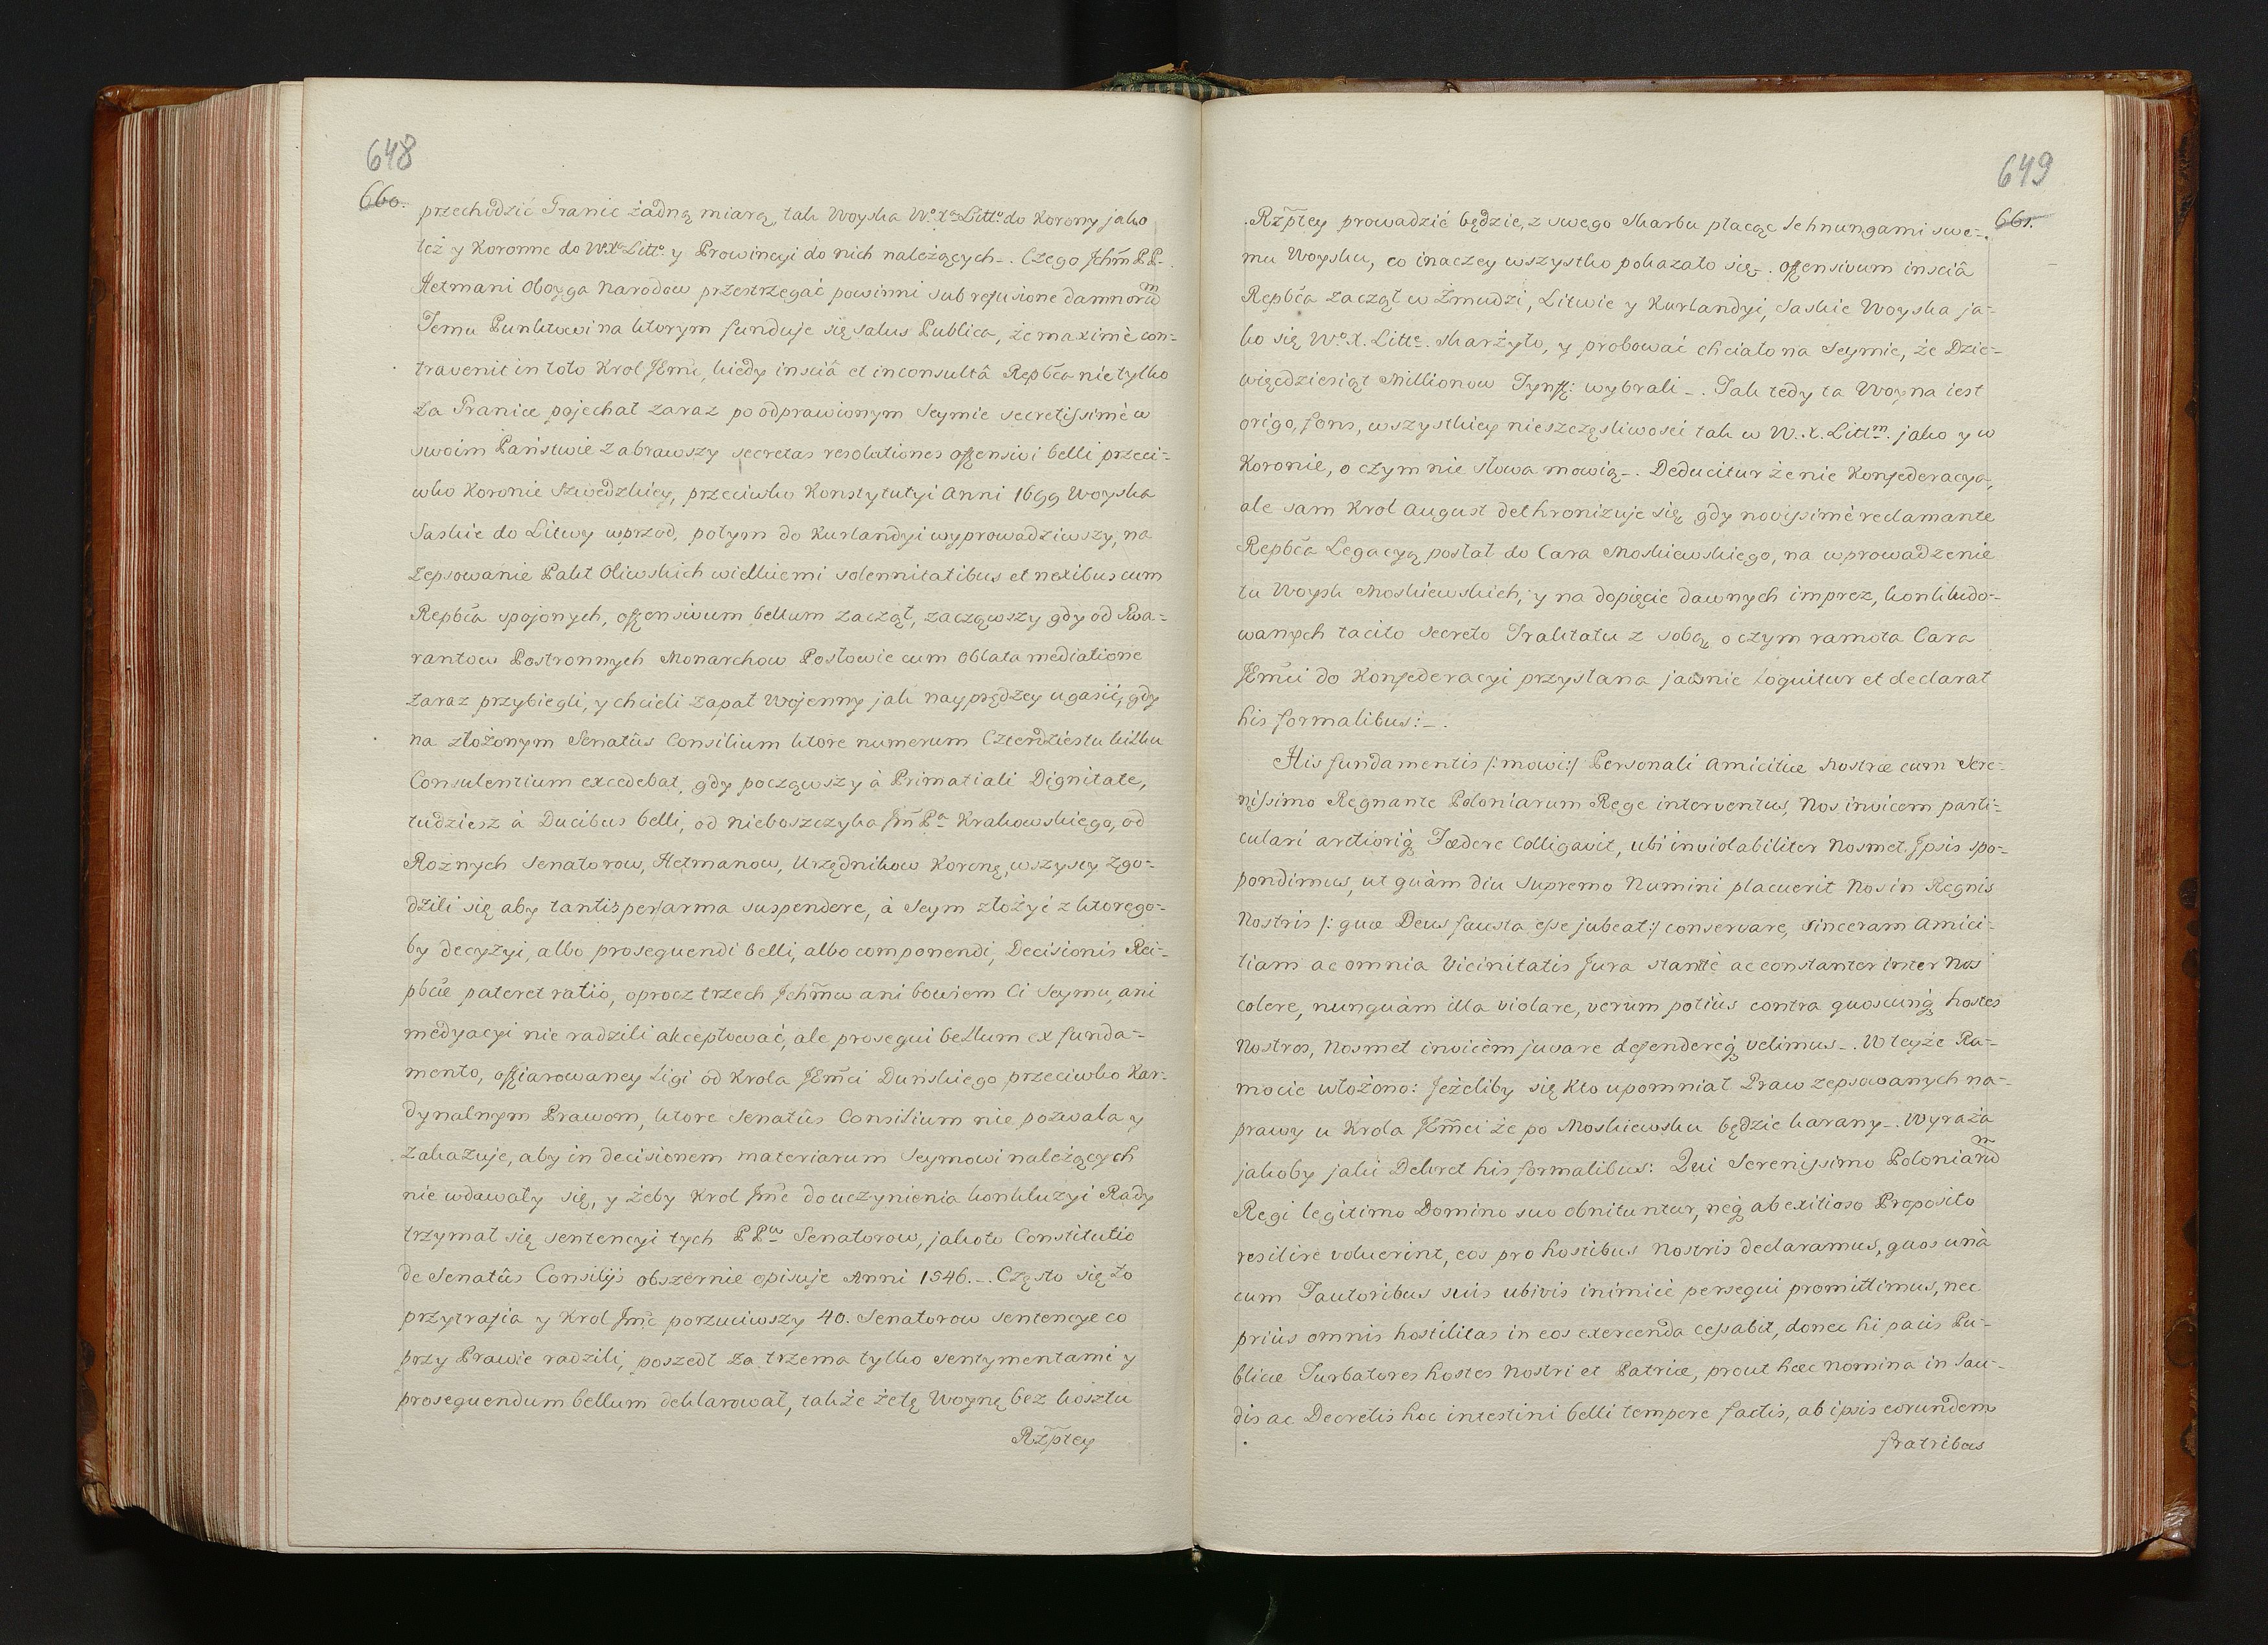 648
660.
przechodzić Granic żadną miarą, tak Woyska Wº Xª Littº do Korony jako
też y Koronne do W. Xª Littº y Prowincyi do nich należących_. Czego Jchm̃ PP.
Hetmani Oboyga Narodow przestrzegać powinni sub refusione damnorum
Temu Punktowi na ktorym funduje się salus Publica, że maximè con=
travenit in toto Krol JEm̃c, kiedy insciâ et inconsultâ Repb̃ca nie tylko
za Granice pojechał zaraz po odprawionym Seymie secretissimè w
swoim Państwie zabrawszy secretas resolutiones offensivi belli przeci=
wko Koronie Szwedzkiey, przeciwko Konstytutyi Anni 1699 Woyska
Saskie do Litwy wprzod, potym do Kurlandyi wyprowadziwszy, na
zepsowanie Pakt Oliwskich wielkiemi solennitatibus et nexibus cum
Repb̃ca spojonych, offensivum bellum zaczął, zacząwszy gdy od Gwa=
rantow Postronnych Monarchow Posłowie cum oblata mediatione
zaraz przybiegli, y chcieli zapał Wojenny jak nayprędzey ugasić, gdy
na złożonym Senatûs Consilium ktore numerum Czterdziestu kilku
Consulentium excedebat, gdy począwszy à Primatiali Dignitate,
tudziesz à Ducibus belli, od nieboszczyka Jm̃ Pª Krakowskiego, od
Rożnych Senatorow, Hetmanow, Urzędnikow Koronę, wszyscy zgo=
dzili się aby tantisper arma suspendere, à Seym złożyć z ktorego=
by decyzyi, albo prosequendi belli, albo componendi, Decisionis Rei=
pb̃cæ pateret ratio, oprocz trzech Jchm̃w ani bowiem Ci Seymu, ani
medyacyi nie radzili akceptować, ale prosequi bellum ex funda=
mento, offiarowaney Ligi od Krola JEm̃ci Duńskiego przeciwko Kar=
dynalnym Prawom, ktore Senatûs Consilium nie pozwala y
zakazuje, aby in decisionem materiarum Seymowi należących
nie wdawały się, y żeby Krol Jm̃c do uczynienia konkluzyi Rady
trzymał się sentencyi tych PPw Senatorow, jakoto Constitutio
de Senatûs Consilijs obszernie opisuje Anni 1546._. Często się to
przytrafia y Krol Jm̃c porzuciwszy 40. Senatorow sentencye co
przy Prawie radzili, poszedł za trzema tylko sentymentami y
prosequendum bellum deklarował, także żetę Woynę bez kosztu
Rz̃ptey
649
661.
Rz̃ptey prowadzić będzie, z swego Skarbu płacąc Lehnungami swe=
mu Woysku, co inaczey wszystko pokazało się_. Offensivum insciâ
Repb̃ca zaczął w Żmudzi, Litwie y Kurlandyi, Saskie Woyska ja=
ko się Wº X. Littº. skarżyło, y probować chciało na Seymie, że Dzie=
więdziesiąt Millionow Tynff: wybrali_. Tak tedy ta Woyna iest
origo, fons, wszystkiey nieszczęsliwosci tak w W. X. Littm. jako y w
Koronie, o czym nie słowa mowią_. Deducitur że nie Konfederacya,
ale sam Krol August dethronizuje się, gdy novissimè reclamante
Repb̃ca Legacyą posłał do Cara Moskiewskiego, na wprowadzenie
tu Woysk Moskiewskich, y na dopięcie dawnych imprez, konkludo=
wanych tacito secreto Traktatu z sobą, o czym ramota Cara
JEm̃ci do Konfederacyi przysłana jawnie loquitur et declarat
his formalibus:_.
His fundamentis /:mowi:/ Personali Amicitiæ Nostræ cum Sere=
nissimo Regnante Poloniarum Rege interventus, Nos invicem parti=
culari arctioriq̃ Fœdere Colligavit, ubi inviolabiliter Nosmet Jpsis spo=
pondimus, ut quàm diu Supremo Numini placuerit Nos in Regnis
Nostris /: quæ Deus fausta esse jubeat:/ conservare, sinceram Amici=
tiam ac omnia Vicinitatis Jura stante ac constanter inter Nos
colere, nunquàm illa violare, verùm potiùs contra quoscunq̃ hostes
Nostros, Nosmet invicèm juvare defendereq̃ velimus_. W teyże Ra=
mocie włożono: Jeżeliby się kto upomniał Praw zepsowanych na=
prawy u Krola JEm̃ci że po Moskiewsku będzie karany_. Wyraża
jakoby jakii Dekret his formalibus: Qui Serenissimo Poloniarum
Regi legitimo Domino suo obnituntur, neq̃ ab exitioso Proposito
resilire voluerint, eos pro hostibus Nostris declaramus, quos unà
cum Fautoribus suis ubivis inimicè persequi promittimus, nec
priùs omnis hostilitas in eos exercenda cessabit, donec hi pacis Pu=
blicæ Turbatores hostes Nostri et Patriæ, prout hæc nomina in Lau=
dis ac Decretis hoc intestini belli tempore factis, ab ipsis eorundem
fratribus